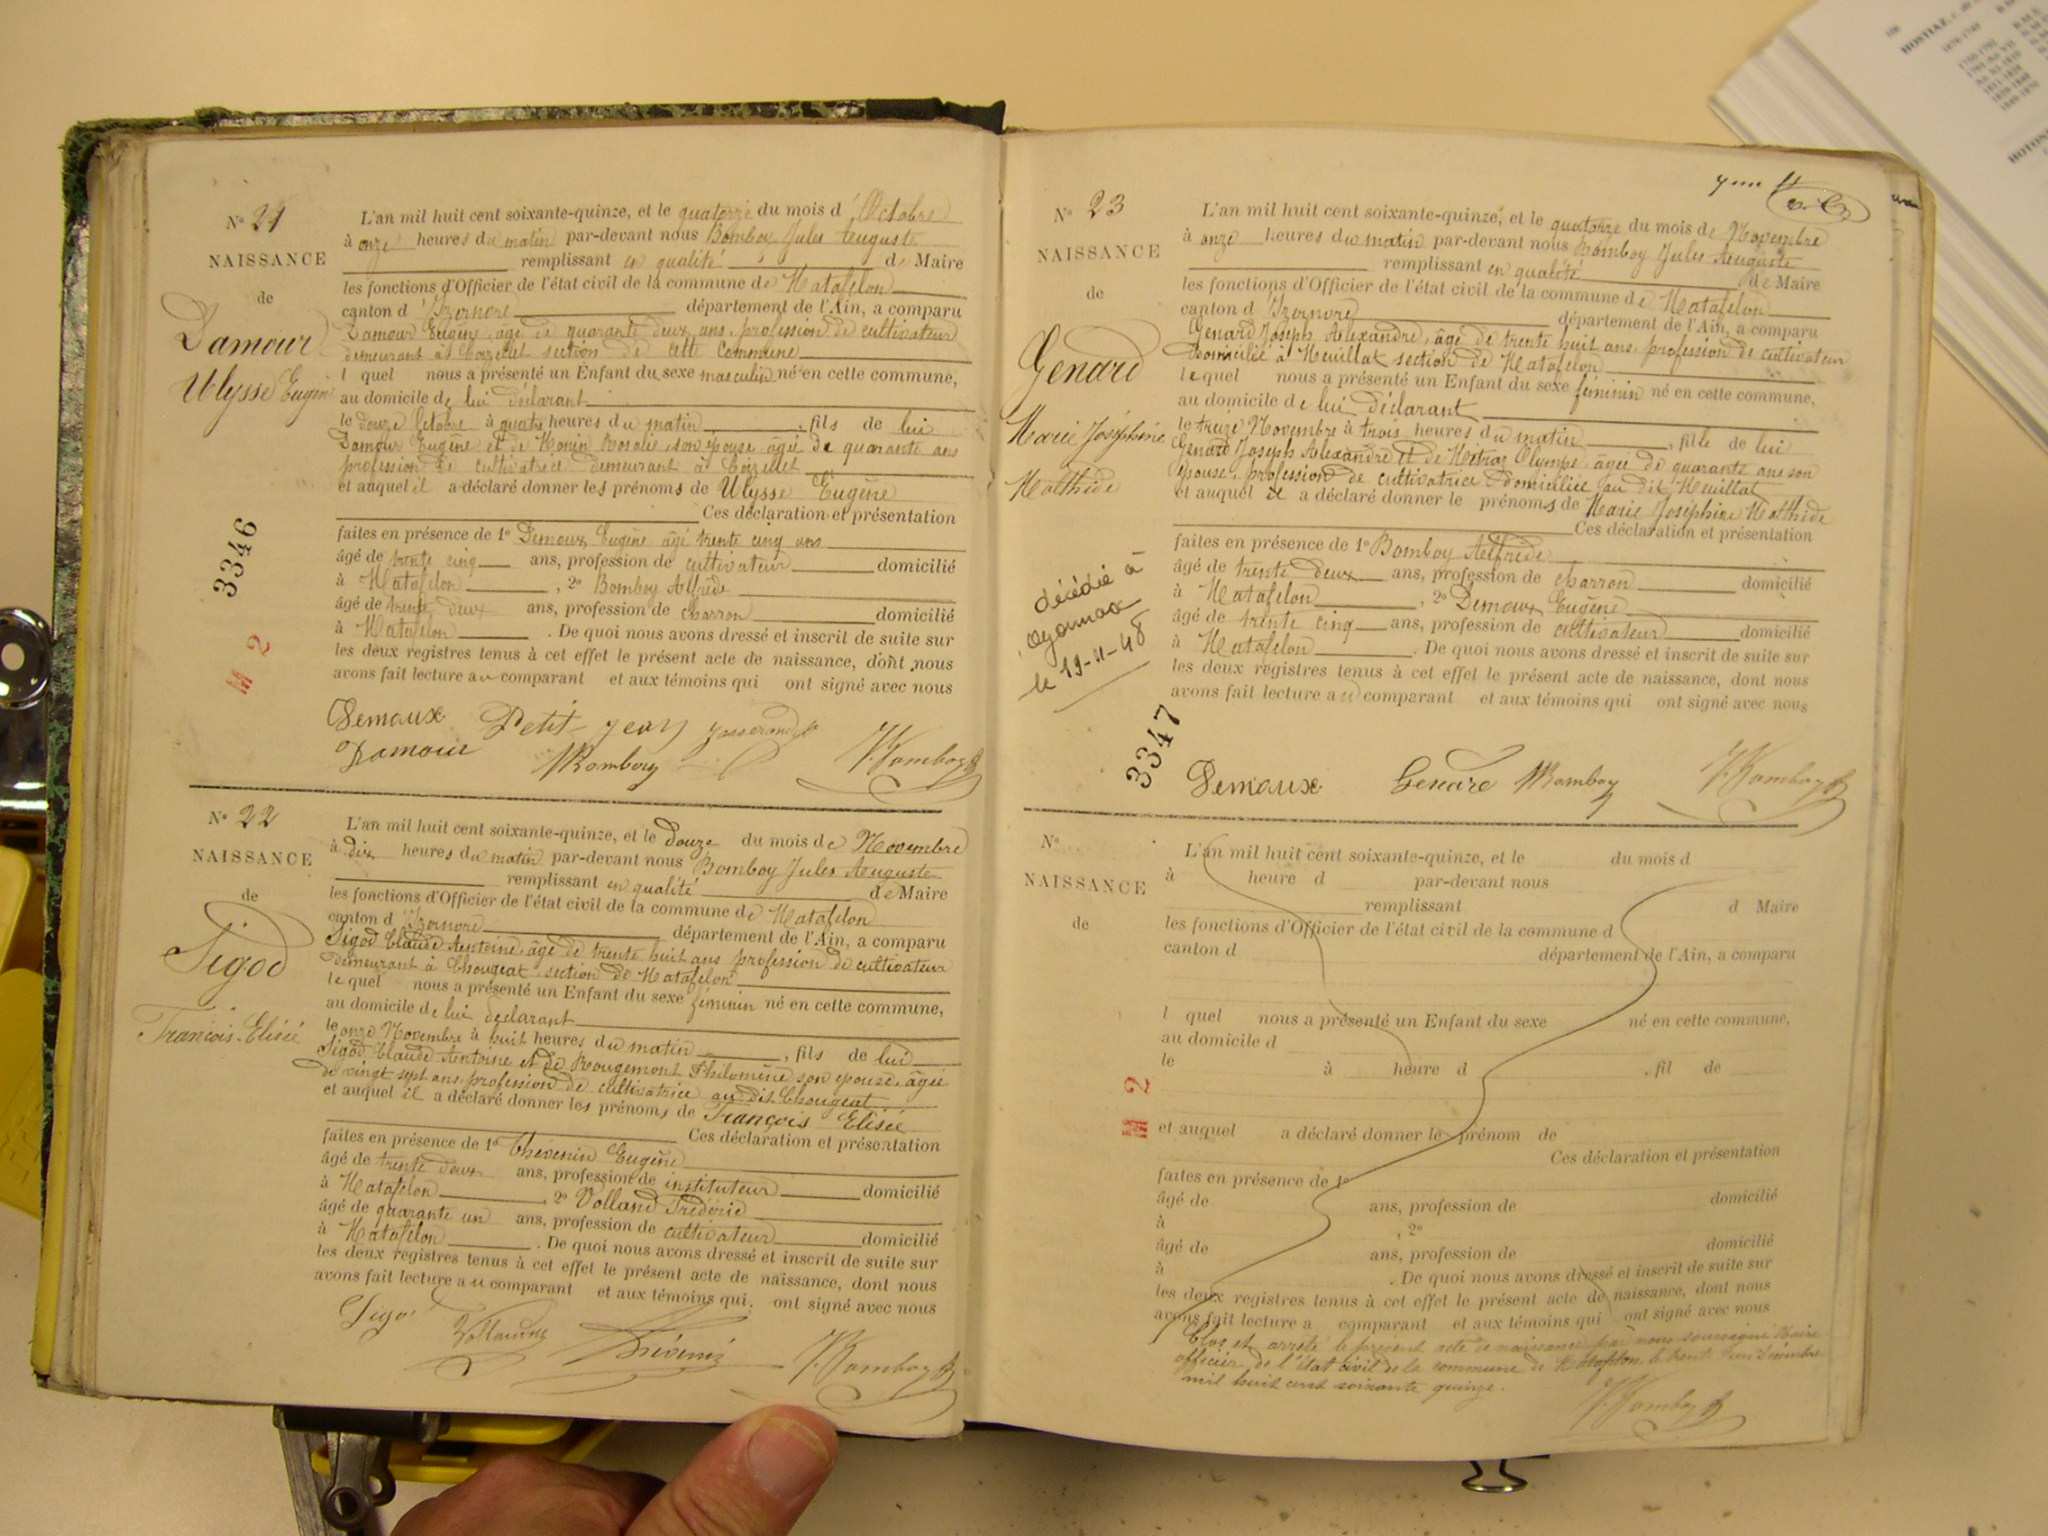 N° 21
NAISSANCE
de
Damour
Ulysse Eugène
3346
M 2
L'an mil huit cent soixante-quinze, et le quatorze du mois d'Octobre
à onze heures du matin par-devant nous Bomboy Jules Auguste
remplissant en qualité de Maire
les fonctions d'Officier de l'état civil de la commune de Matafelon
canton d'Izernore département de l'Ain, a comparu
Damour Eugène, âgé de quarante deux ans, profession de cultivateur
demeurant à Coizelet section de cette commune
l quel nous a présenté un Enfant du sexe masculin né en cette commune,
au domicile de lui déclarant
le douze Octobre à quatre heures du matin, fils de lui
Damour Eugène et de Rosalie, son épouse, âgée de quarante ans
profession de cultivatrice demeurant à Coizelet
et auquel il a déclaré donner les prénoms de Ulysse Eugène
Ces déclaration et présentation
faites en présence de 1° Demoux Eugène âgé trente cinq ans
âgé de trente cinq ans, profession de cultivateur domicilié
à Matafelon, 2° Bomboy Alfrède
âgé de trente deux ans, profession de charron domicilié
à Matafelon. De quoi nous avons dressé et inscrit de suite sur
les deux registres tenus à cet effet le présent acte de naissance, dont nous
avons fait lecture au comparant et aux témoins qui ont signé avec nous
Demoux Petit jean
Damour Bomboy J. Bomboy
N° 22
NAISSANCE
de
Sigod
François-Elisée
L'an mil huit cent soixante-quinze, et le douze du mois de Novembre
à dix heures du matin par-devant nous Bomboy Jules Auguste
remplissant en qualité de Maire
les fonctions d'Officier de l'état civil de la commune de Matafelon
canton d'Izernore département de l'Ain, a comparu
Sigod Claude Antoine, âgé de trente huit ans profession de cultivateur
demeurant à Chougeat section de Matafelon
le quel nous a présenté un Enfant du sexe féminin né en cette commune,
au domicile de lui déclarant
le onze Novembre à huit heures du matin, fils de lui
Sigod Claude Antoine et de Rougemont Philomène son épouse, âgée
de vingt sept ans, profession de cultivatrice au dit Chougeat
et auquel il a déclaré donner les prénoms de François Elisée
Ces déclaration et présentation
faites en présence de 1° Thévenin Eugène
âgé de trente deux ans, profession de instituteur domicilié
à Matafelon, 2° Volland Fréderic
âgé de quarante un ans, profession de cultivateur domicilié
à Matafelon. De quoi nous avons dressé et inscrit de suite sur
les deux registres tenus à cet effet le présent acte de naissance, dont nous
avons fait lecture au comparant et aux témoins qui ont signé avec nous
Sigod Volland Thévenin J. Bomboy
N° 23
NAISSANCE
de
Genard
Marie Joséphine
Mathide
décédée à
Oyonnax
le 19-11-48
3347
L'an mil huit cent soixante-quinze, et le quatorze du mois de Novembre
à onze heures du matin par-devant nous Bomboy Jules Auguste
remplissant en qualité de Maire
les fonctions d'Officier de l'état civil de la commune de Matafelon
canton d'Izernore département de l'Ain, a comparu
Genard Joseph Alexandre, âgé de trente huit ans, profession de cultivateur
domicilié à Heuillat section de Matafelon
le quel nous a présenté un Enfant du sexe féminin né en cette commune,
au domicile de lui déclarant
le treize Novembre à trois heures du matin, fille de lui
Genard Joseph Alexandre et de Olympe, âgée de quarante ans son
épouse, profession de cultivatrice domiciliée au dit Heuillat
et auquel il a déclaré donner le prénoms de Marie Joséphine Mathide
Ces déclaration et présentation
faites en présence de 1° Bomboy Alfrède
âgé de trente deux ans, profession de charron domicilié
à Matafelon, 2° Demoux Eugène
âgé de trente cinq ans, profession de cultivateur domicilié
à Matafelon. De quoi nous avons dressé et inscrit de suite sur
les deux registres tenus à cet effet le présent acte de naissance, dont nous
avons fait lecture au comparant et aux témoins qui ont signé avec nous
Demoux Genard Bomboy J. Bomboy
N°
NAISSANCE
de
M 2
L'an mil huit cent soixante-quinze, et le du mois d
à heure d par-devant nous
remplissant d Maire
les fonctions d'Officier de l'état civil de la commune d
canton d département de l'Ain, a comparu
l quel nous a présenté un Enfant du sexe né en cette commune,
au domicile d
le à heure d , fil de
et auquel a déclaré donner le prénom de
Ces déclaration et présentation
faites en présence de 1°
âgé de ans, profession de domicilié
à , 2°
âgé de ans, profession de domicilié
à . De quoi nous avons dressé et inscrit de suite sur
les deux registres tenus à cet effet le présent acte de naissance, dont nous
avons fait lecture a comparant et aux témoins qui ont signé avec nous
Clos et arrêté le présent acte de naissance par nous soussigné Maire
officier de l'état civil de la commune de Matafelon, le trente un Décembre
mil huit cent soixante quinze.
J. Bomboy
HOSTIAZ